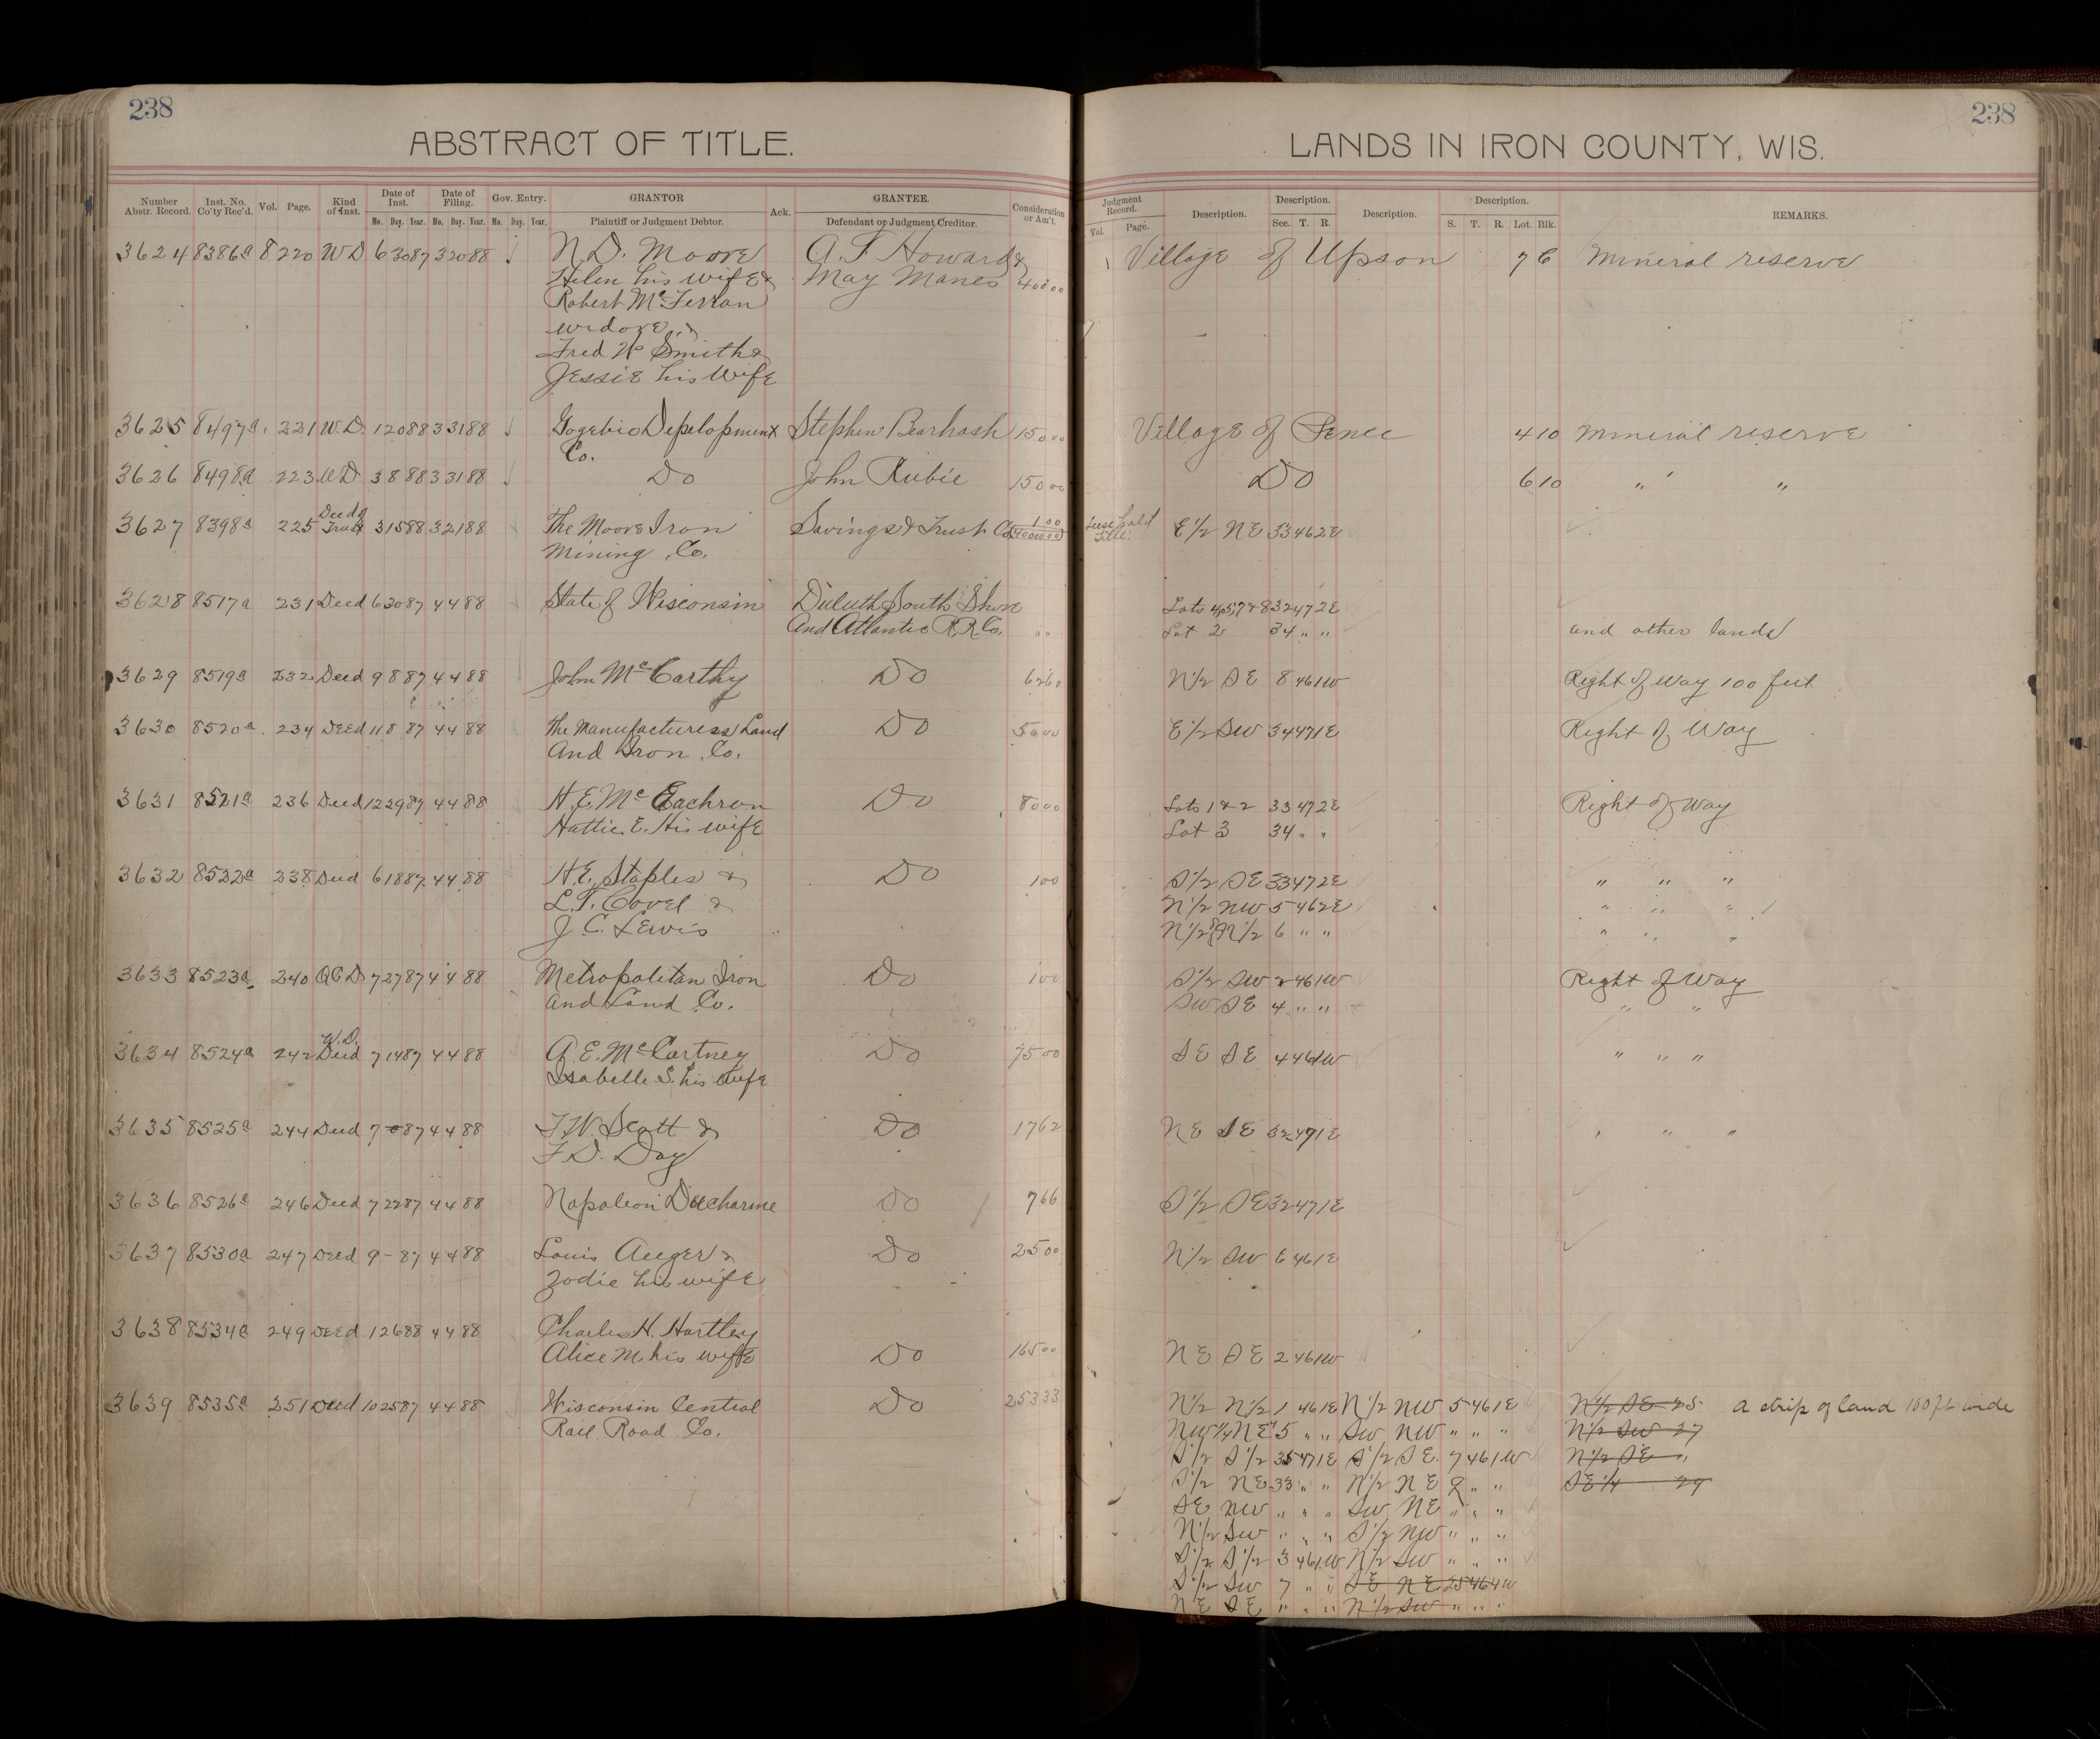 238
ABSTRACT OF TITLE.
Number Abstr. Record. Inst. No. Co'ty Rec'd. Vol. Page. Kind of Inst. Date of Inst. Date of Filing. Gov. Entry. GRANTOR Ack. GRANTEE. Consideration or Am't.
Mo. Day. Year. Mo. Day. Year. Mo. Day. Year. Plaintiff or Judgment Debtor. Defendant or Judgment Creditor.
3624 8386a 8 220 W D 6 30 87 3 20 88 N. D. Moore A. F. Howard &
Helen his wife & May Manes 400 00
Robert McFerran
widore &
Fred Smith &
Jessie his Wife
3625 8497a 221 W. D. 1 20 88 3 31 88 Gogebic Depelopment Stephen 150 00
Co.
3626 8498a 223 W D 3 8 88 3 31 88 Do John Rubie 150 00
3627 8398a 225 Deed of Trust 3 15 88 3 21 88 The Moore Iron Savings & Trust Co. 1 00
Mining Co.
3628 8517a 231 Deed 6 30 87 4 4 88 State of Wisconsin Duluth South Shore
And Atlantic R. R. Co.
3629 8519a 232 Deed 9 8 87 4 4 88 John McCarthy Do 62 60
3630 8520a 234 Deed 11 8 87 4 4 88 The Manufacturers Land Do 50 00
And Iron Co.
3631 8521a 236 Deed 12 29 87 4 4 88 H. E. McEachron Do 80 00
Hattie E. His wife
3632 8522a 238 Deed 6 18 87 4 4 88 H. E. Staples & Do 1 00
L. T. Covel &
J. C. Lewis
3633 8523a 240 Q C D 7 27 87 4 4 88 Metropolitan Iron Do 1 00
and Land Co.
3634 8524a 242 W. D. Deed 7 14 87 4 4 88 A. E. McCartney Do 75 00
Isabelle S. his wife
3635 8525a 244 Deed 7 87 4 4 88 F. W. Scott & Do 17 62
F. D. Day
3636 8526a 246 Deed 7 22 87 4 4 88 Napoleon Ducharme Do 7 66
3637 8530a 247 Deed 9 - 87 4 4 88 Louis Auger & Do 25 00
Zodie his wife
3638 8534a 249 Deed 1 26 88 4 4 88 Charles H. Hartley
Alice M. his wife Do 165 00
3639 8535a 251 Deed 10 25 87 4 4 88 Wisconsin Central Do 253 33
Rail Road Co.
238
LANDS IN IRON COUNTY, WIS.
Judgment Record. Description. Description. Description. Description. REMARKS.
Vol. Page. Sec. T. R. S. T. R. Lot. Blk.
Village of Upson 7 6 Mineral reserve
Village of Pence 4 10 Mineral reserve
Do 6 10 " "
Lease hold Title. E 1/2 NE 33 46 2E
Lots 4,5,7 & 8 32 47 2E
Lot 2 34 " " and other lands
N 1/2 SE 8 46 1W Right of Way 100 feet
E 1/2 SW 34 47 1E Right of Way
Lots 1 & 2 33 47 2E Right of Way
Lot 3 34 " "
S 1/2 SE 33 47 2E " " "
N 1/2 NW 5 46 2E " " "
N 1/2 of N 1/2 6 " " " " "
S 1/2 SW 2 46 1W Right of Way
SW SE 4 " " " "
SE SE 4 46 1W " " "
NE SE 32 47 1E " " "
S 1/2 SE 32 47 1E
N 1/2 SW 6 46 1E
NE SE 2 46 1W
N 1/2 N 1/2 1 46 1E N 1/2 NW 5 46 1E N 1/2 SE 25 a strip of land 100 ft wide
NW 1/4 NE 5 " " SW NW " " " N 1/2 SW 27
S 1/2 S 1/2 35 47 1E S 1/2 SE 7 46 1W N 1/2 SE "
S 1/2 NE 33 " " N 1/2 NE 8 " " SE 1/4 29
SE NW " " " SW NE " " "
N 1/2 SW " " " S 1/2 NW " " "
S 1/2 S 1/2 3 46 1W N 1/2 SW " " "
S 1/2 SW 7 " " SE NE 25 46 4W
NE SE " " " N 1/2 SW " " "